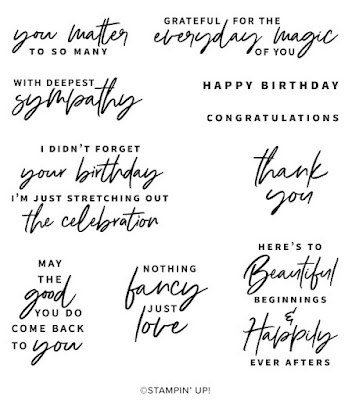 you matter
TO SO MANY
GRATEFUL FOR THE
everyday magic
OF YOU
WITH DEEPEST
sympathy
HAPPY BIRTHDAY
CONGRATULATIONS
I DIDN'T FORGET
your birthday
I'M JUST STRETCHING OUT
the celebration
thank
you
MAY
THE
good
YOU DO
COME BACK
TO you
NOTHING
fancy
JUST
love
HERE'S TO
Beautiful
BEGINNINGS
&
Happily
EVER AFTERS
©STAMPIN' UP!